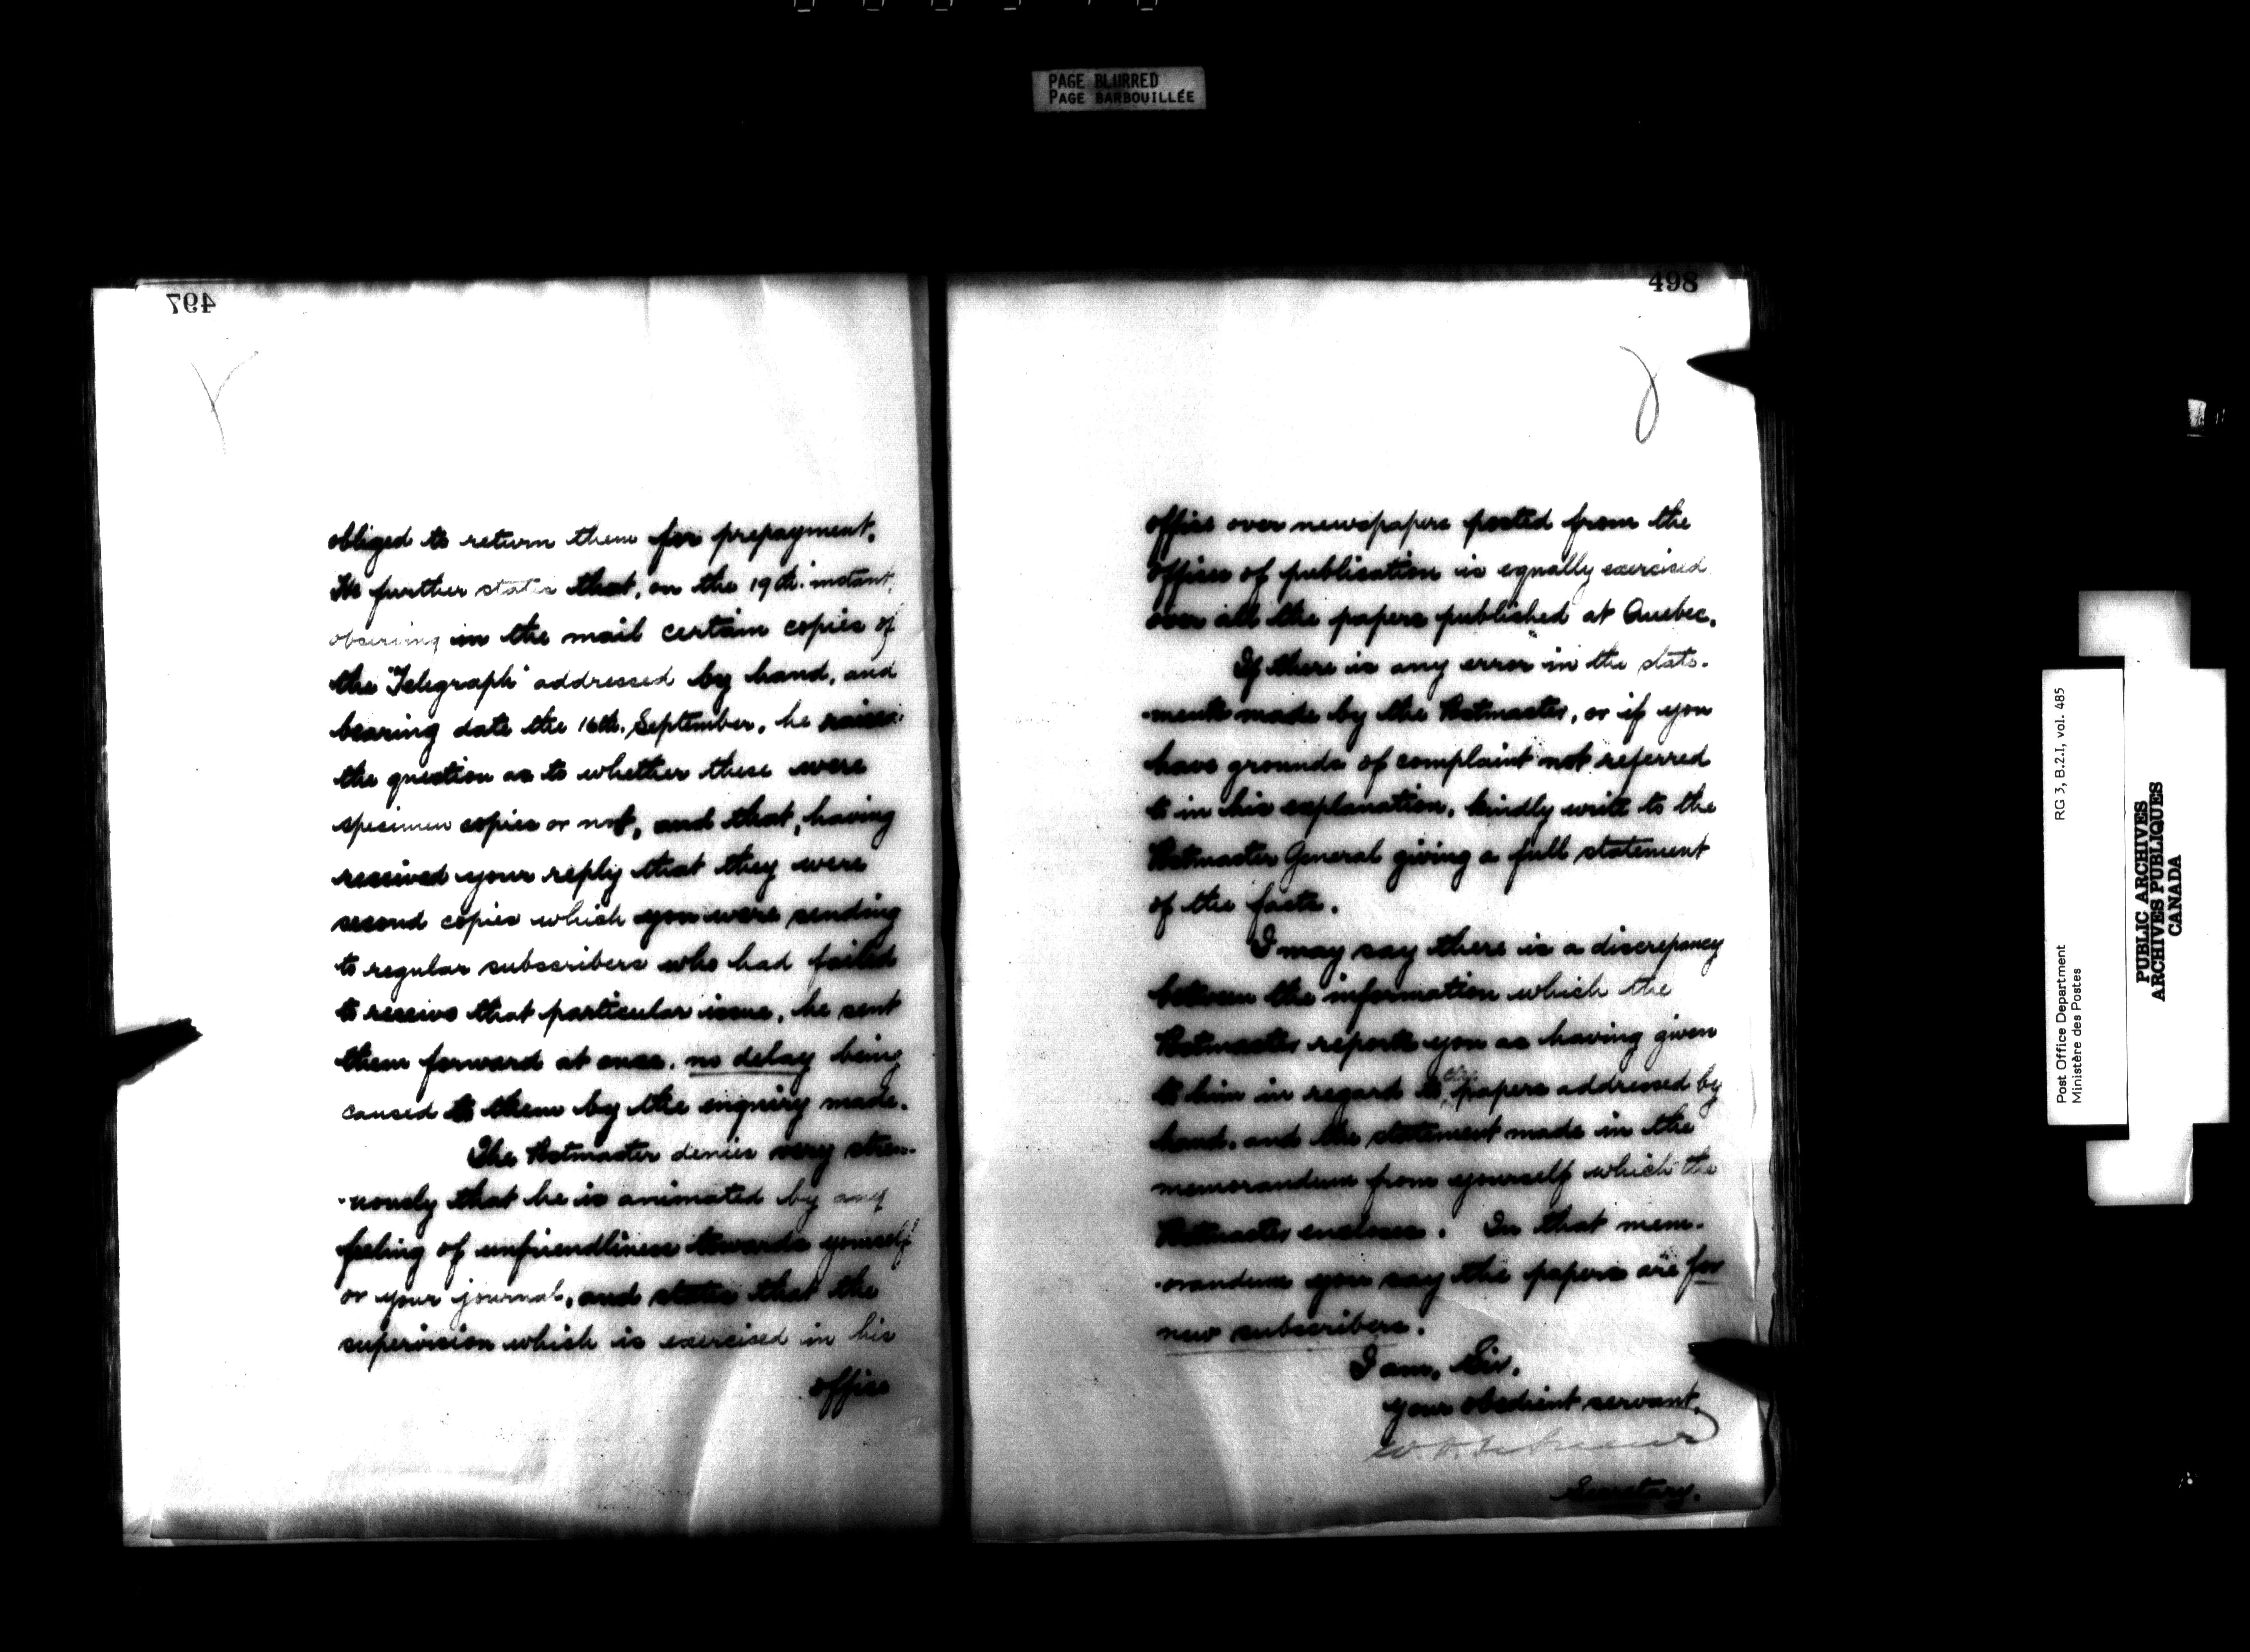 PAGE BLURRED
PAGE BARBOUILLÉE
497
obliged to return them for prepayment.
He further states that, on the 19th. instant,
observing in the mail certain copies of
the "Telegraph" addressed by hand, and
bearing date the 16th. September, he raised
the question as to whether these were
specimen copies or not, and that, having
received your reply that they were
second copies which you were sending
to regular subscribers who had failed
to receive that particular issue, he sent
them forward at once, no delay being
caused to them by the enquiry made.
The Postmaster denies very stren-
-uously that he is animated by any
feeling of unfriendliness towards yourself
or your journal, and states that the
supervision which is exercised in his
office
498
office over newspapers posted from the
offices of publication is equally exercised
over all the papers published at Quebec.
If there is any error in the state-
-ments made by the Postmaster, or if you
have grounds of complaint not referred
to in his explanation, kindly write to the
Postmaster General giving a full statement
of the facts.
I may say there is a discrepancy
between the information which the
Postmaster reports you as having given
to him in regard to the papers addressed by
hand, and the statement made in the
memorandum from yourself which the
Postmaster encloses. In that mem-
-orandum you say the papers are for
new subscribers.
I am, Sir,
your obedient servant,
Secretary.
Post Office Department
Ministère des Postes
RG 3, B.2.I, vol. 485
PUBLIC ARCHIVES
ARCHIVES PUBLIQUES
CANADA